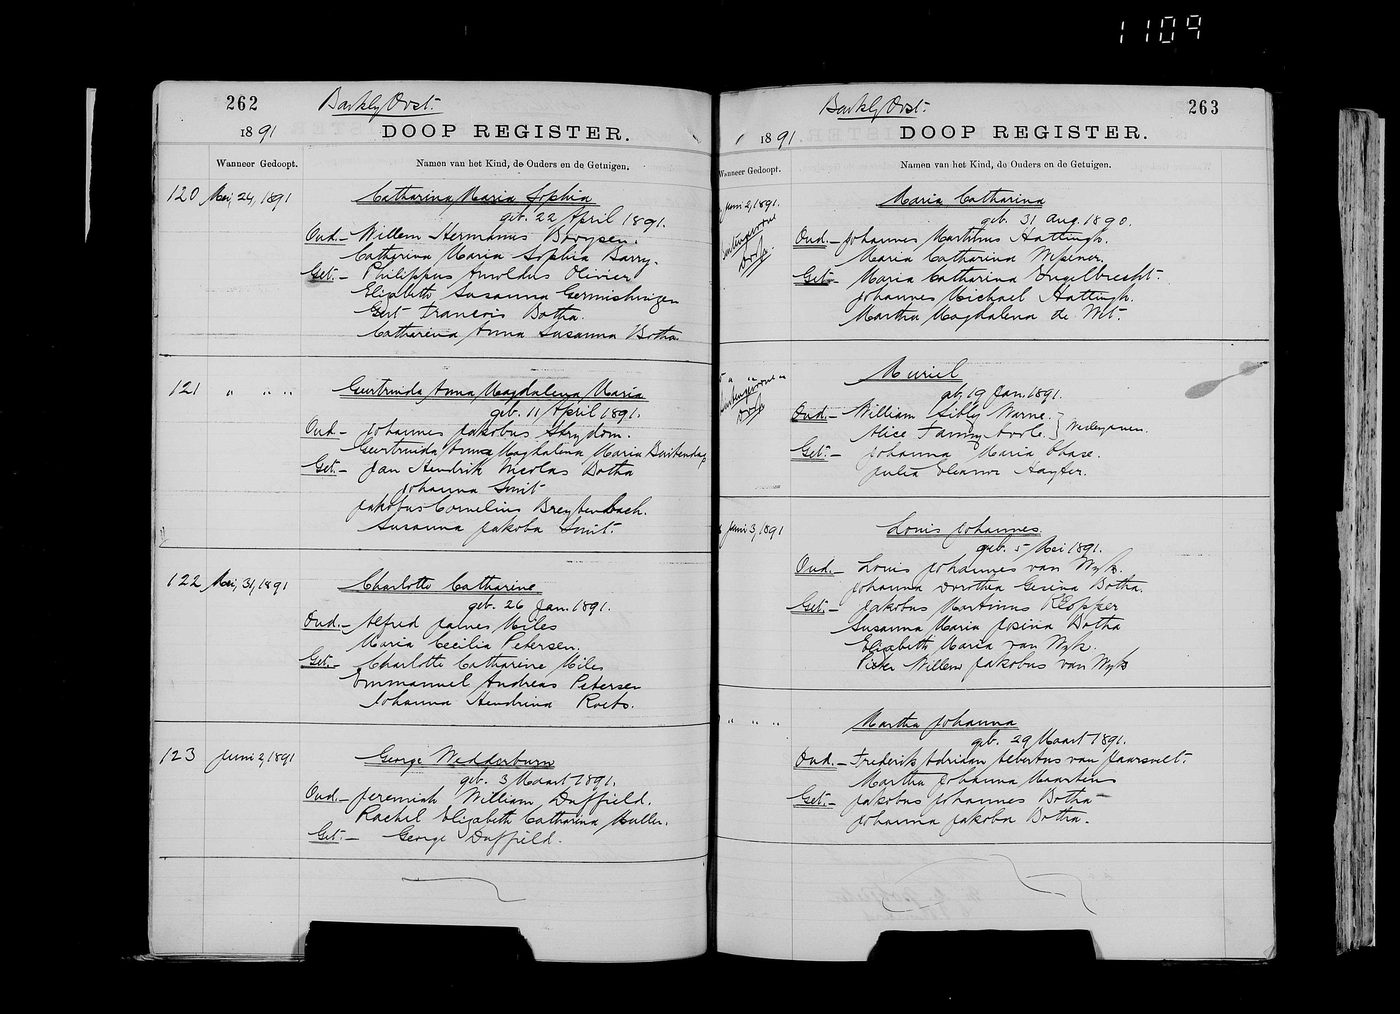 1109
262
Barkly Oost.
1891
DOOP REGISTER.
Wanneer Gedoopt.
Namen van het Kind, de Ouders en de Getuigen.
120 Mei, 24, 1891
Catharina Maria Sophia
geb. 22 April 1891.
Oud.- Willem Hermanus
Catherina Maria Sophia Barry.
Get.- Philippus Arnoldus Olivier
Elizabeth Susanna Germishuizen
Gert Francois Botha.
Catharina Anna Susanna Botha
121 " " "
Gertruida Anna Magdalena Maria
geb. 11 April 1891.
Oud.- Johannes Jakobus Strydom.
Geertruida Anna Magdalena Maria Buitendag
Get.- Jan Hendrik Nicolas Botha
Johanna Smit
Jakobus Cornelius Breytenbach.
Susanna Jakoba Smit.
122 Mei, 31, 1891
Charlotte Catharine
geb. 26 Jan. 1891.
Oud.- Alfred James Miles
Maria Cecilia Petersen.
Get.- Charlotte Catharine Miles
Emmanuel Andreas Petersen
Johanna Hendrina Roets.
123 Juni 2, 1891
George Wedderburn
geb. 3 Maart 1891.
Oud.- Jeremiah William Duffield.
Rachel Elizabeth Catharina Muller.
Get.- George Duffield.
263
Barkly Oost.
1891
DOOP REGISTER.
Wanneer Gedoopt.
Namen van het Kind, de Ouders en de Getuigen.
Juni 2, 1891.
Maria Catharina
geb. 31 Aug. 1890.
Oud.- Johannes Marthinus Hattingh.
Maria Catharina
Get.- Maria Catharina Engelbrecht.
Johannes Michael Hattingh.
Martha Magdalena de Wit.
" " "
Muriel
geb. 19 Jan. 1891.
Oud.- William Sibly Warne.
Alice Fanny } Wesleyanen.
Get.- Johanna Maria Chase.
Julia Eleanor Hayter.
Juni 3, 1891
Louis Johannes
geb. 5 Mei 1891.
Oud.- Louis Johannes van Wyk.
Johanna Dorothea Gesina Botha.
Get.- Jakobus Martinus Klopper
Susanna Maria Josina Botha
Elizabeth Maria van Wyk.
Pieter Willem Jakobus van Wyk
" " "
Martha Johanna
geb. 29 Maart 1891.
Oud.- Frederik Adriaan Albertus van Jaarsvelt.
Martha Johanna Maartens
Get.- Jakobus Johannes Botha
Johanna Jakoba Botha.